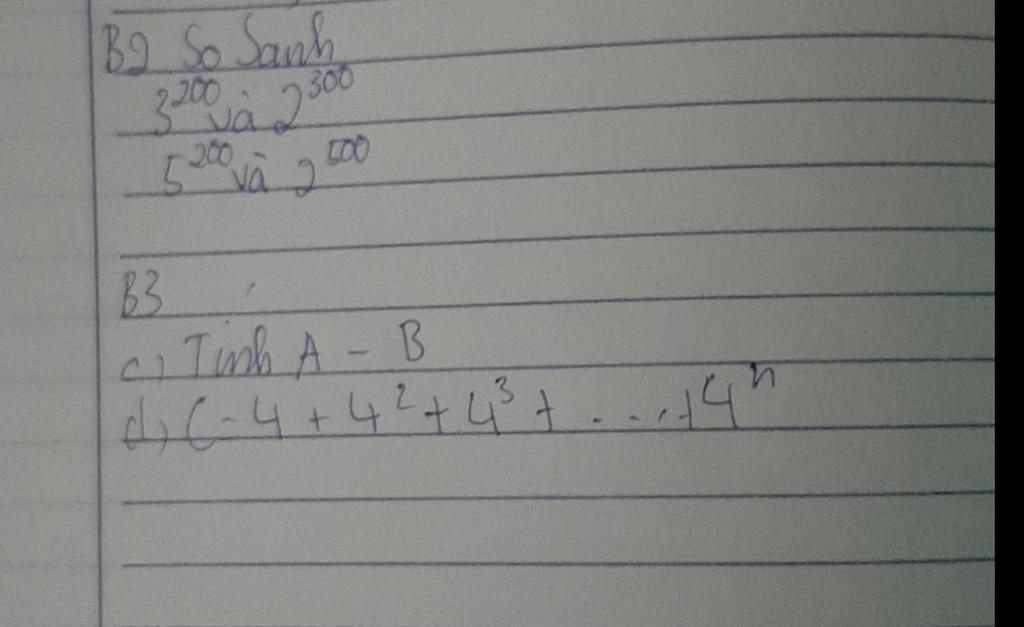 B2 So Sanh
3^200 và 2^300
5^200 và 2^500
B3
c) Tính A - B
d) C = 4 + 4^2 + 4^3 + .... + 4^n